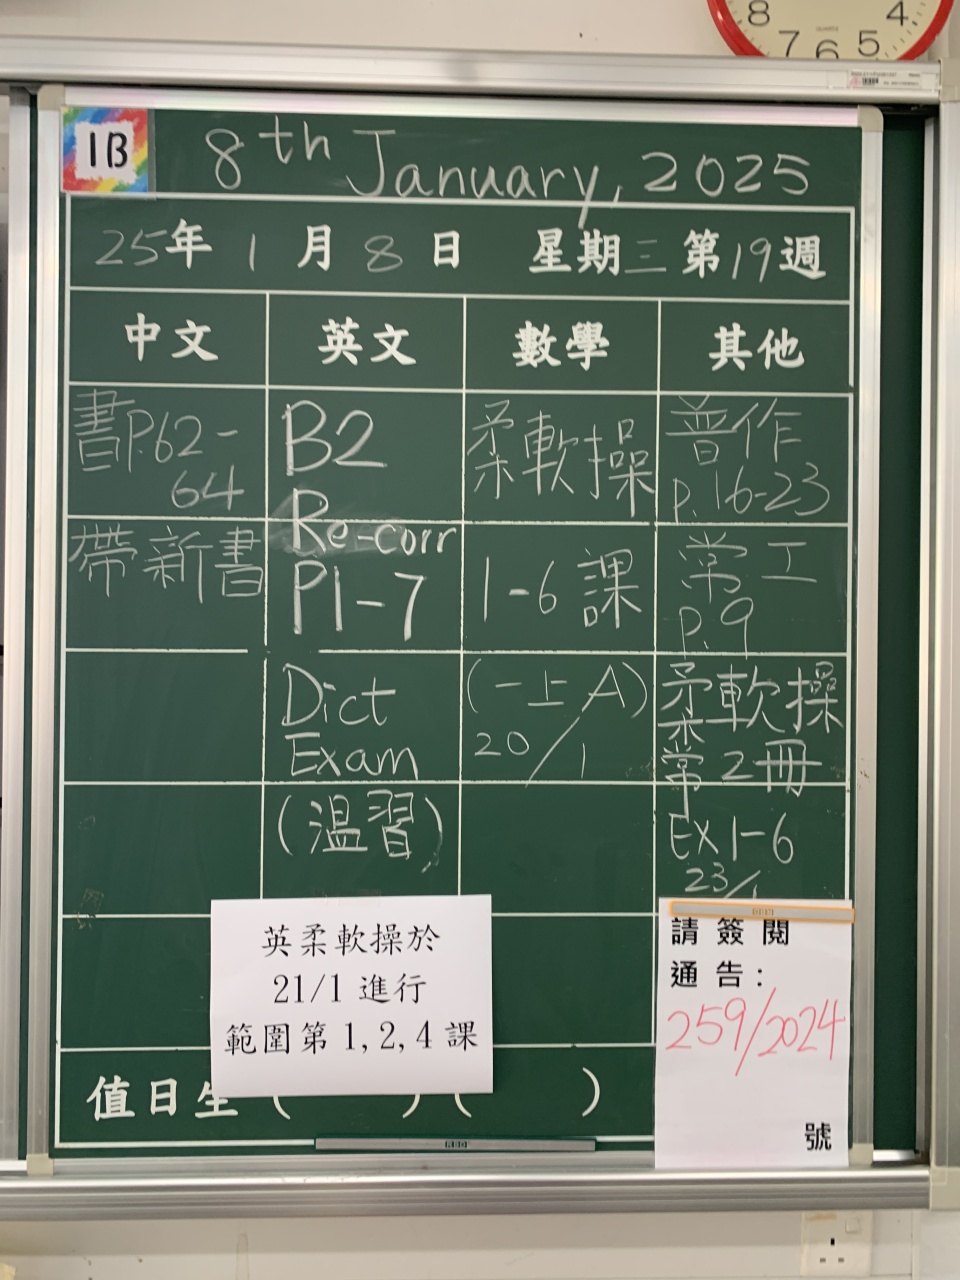 8 4
7 6 5
QUARTZ
1B
8th January, 2025
25年 1月 8日 星期三 第19週
中文 英文 數學 其他
書P.62-
64
帶新書
B2
Re-corr
P1-7
Dict
Exam
(溫習)
柔軟操
1-6 課
(一上A)
20/1
普作
P.16-23
常工
P.9
柔軟操
常2冊
EX 1-6
23/1
英柔軟操於
21/1 進行
範圍第 1, 2, 4 課
請簽閱
通告:
259/2024
號
值日生 ( ) ( )